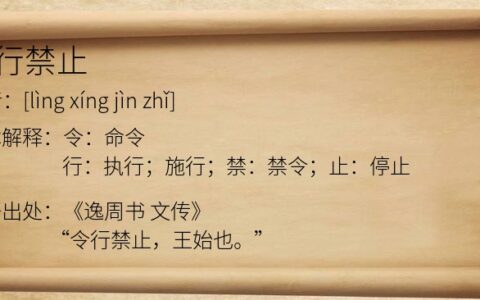 行禁止
：[lìng xíng jìn zhǐ]
解释：令：命令
行：执行；施行；禁：禁令；止：停止
出处：《逸周书 文传》
“令行禁止，王始也。”